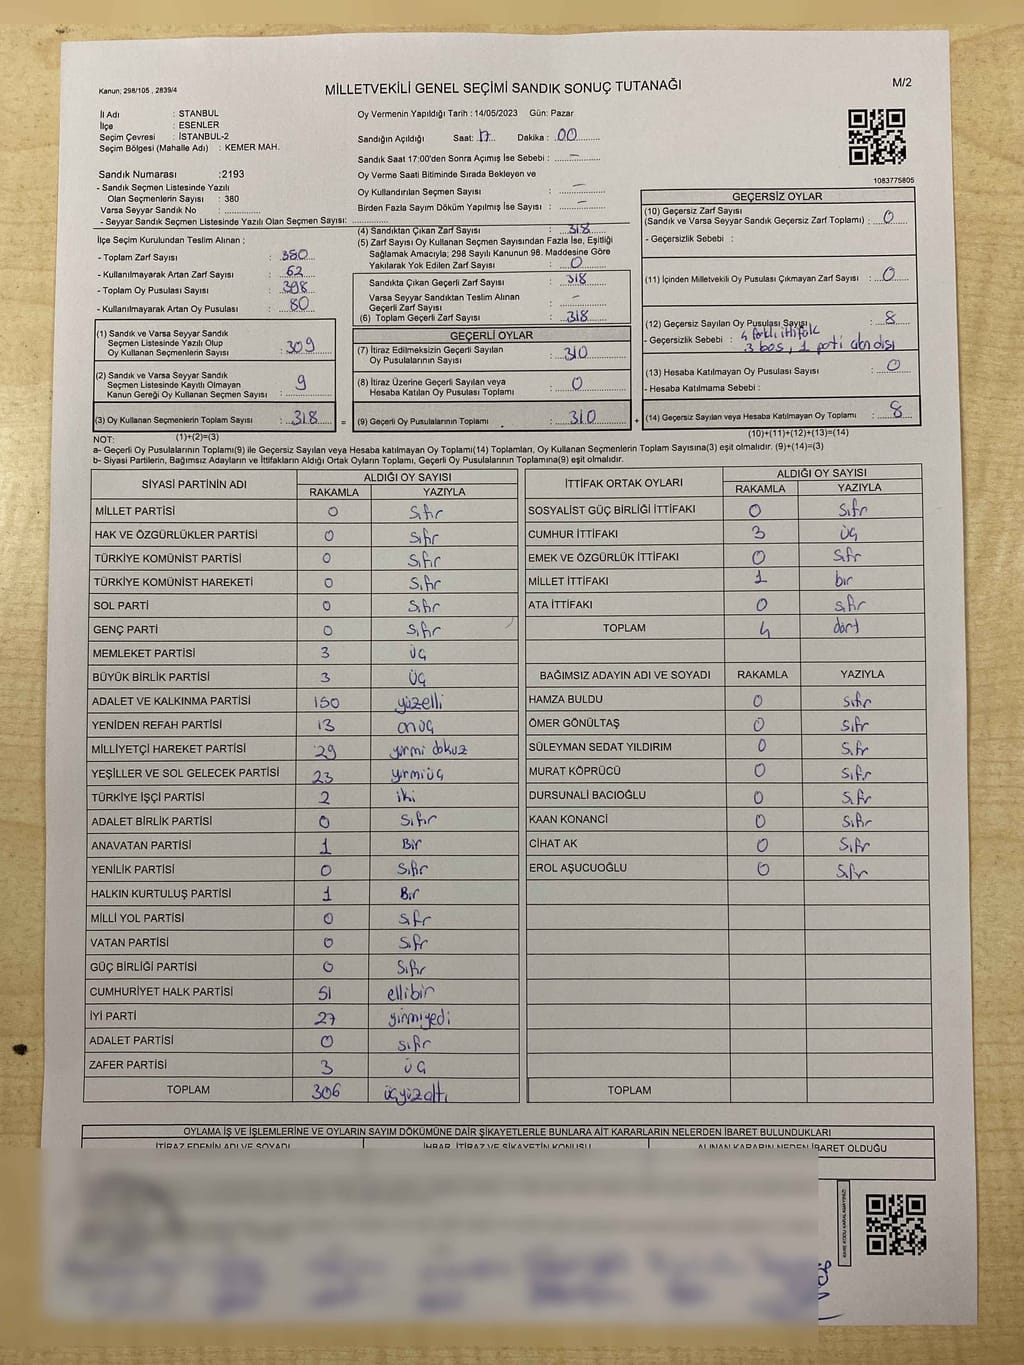 Kanun; 298/105 , 2839/4
MİLLETVEKİLİ GENEL SEÇİMİ SANDIK SONUÇ TUTANAĞI
M/2
İl Adı : STANBUL
İlçe : ESENLER
Seçim Çevresi : İSTANBUL-2
Seçim Bölgesi (Mahalle Adı) : KEMER MAH.
Sandık Numarası :2193
- Sandık Seçmen Listesinde Yazılı
Olan Seçmenlerin Sayısı : 380
Varsa Seyyar Sandık No :
- Seyyar Sandık Seçmen Listesinde Yazılı Olan Seçmen Sayısı:
Oy Vermenin Yapıldığı Tarih : 14/05/2023 Gün: Pazar
Sandığın Açıldığı Saat: 17 Dakika : 00
Sandık Saat 17:00'den Sonra Açımış İse Sebebi : -
Oy Verme Saati Bitiminde Sırada Bekleyen ve
Oy Kullandırılan Seçmen Sayısı : -
Birden Fazla Sayım Döküm Yapılmış İse Sayısı : -
1083775805
İlçe Seçim Kurulundan Teslim Alınan ;
- Toplam Zarf Sayısı : 380
- Kullanılmayarak Artan Zarf Sayısı : 62
- Toplam Oy Pusulası Sayısı : 398
- Kullanılmayarak Artan Oy Pusulası : 80
(1) Sandık ve Varsa Seyyar Sandık
Seçmen Listesinde Yazılı Olup
Oy Kullanan Seçmenlerin Sayısı : 309
(2) Sandık ve Varsa Seyyar Sandık
Seçmen Listesinde Kayıtlı Olmayan
Kanun Gereği Oy Kullanan Seçmen Sayısı : 9
(3) Oy Kullanan Seçmenlerin Toplam Sayısı : 318
(4) Sandıktan Çıkan Zarf Sayısı : 318
(5) Zarf Sayısı Oy Kullanan Seçmen Sayısından Fazla İse, Eşitliği
Sağlamak Amacıyla; 298 Sayılı Kanunun 98. Maddesine Göre
Yakılarak Yok Edilen Zarf Sayısı : 0
Sandıkta Çıkan Geçerli Zarf Sayısı : 318
Varsa Seyyar Sandıktan Teslim Alınan
Geçerli Zarf Sayısı : -
(6) Toplam Geçerli Zarf Sayısı : 318
GEÇERLİ OYLAR
(7) İtiraz Edilmeksizin Geçerli Sayılan
Oy Pusulalarının Sayısı : 310
(8) İtiraz Üzerine Geçerli Sayılan veya
Hesaba Katılan Oy Pusulaları Toplamı : 0
= (9) Geçerli Oy Pusulalarının Toplamı : 310
GEÇERSİZ OYLAR
(10) Geçersiz Zarf Sayısı
(Sandık ve Varsa Seyyar Sandık Geçersiz Zarf Toplamı) : 0
- Geçersizlik Sebebi :
(11) İçinden Milletvekili Oy Pusulası Çıkmayan Zarf Sayısı : 0
(12) Geçersiz Sayılan Oy Pusulası Sayısı : 8
- Geçersizlik Sebebi : 4 farklı ittifak
3 boş, 1 parti alan dışı
(13) Hesaba Katılmayan Oy Pusulası Sayısı : 0
- Hesaba Katılmama Sebebi :
+ (14) Geçersiz Sayılan veya Hesaba Katılmayan Oy Toplamı : 8
NOT: (1)+(2)=(3)
(10)+(11)+(12)+(13)=(14)
a- Geçerli Oy Pusulalarının Toplamı(9) ile Geçersiz Sayılan veya Hesaba katılmayan Oy Toplamı(14) Toplamları, Oy Kullanan Seçmenlerin Toplam Sayısına(3) eşit olmalıdır. (9)+(14)=(3)
b- Siyasi Partilerin, Bağımsız Adayların ve İttifakların Aldığı Ortak Oyların Toplamı, Geçerli Oy Pusulalarının Toplamına(9) eşit olmalıdır.
SİYASİ PARTİNİN ADI ALDIĞI OY SAYISI
RAKAMLA YAZIYLA
MİLLET PARTİSİ 0 Sıfır
HAK VE ÖZGÜRLÜKLER PARTİSİ 0 Sıfır
TÜRKİYE KOMÜNİST PARTİSİ 0 Sıfır
TÜRKİYE KOMÜNİST HAREKETİ 0 Sıfır
SOL PARTİ 0 Sıfır
GENÇ PARTİ 0 Sıfır
MEMLEKET PARTİSİ 3 üç
BÜYÜK BİRLİK PARTİSİ 3 üç
ADALET VE KALKINMA PARTİSİ 150 yüzelli
YENİDEN REFAH PARTİSİ 13 onüç
MİLLİYETÇİ HAREKET PARTİSİ 29 yirmi dokuz
YEŞİLLER VE SOL GELECEK PARTİSİ 23 yirmiüç
TÜRKİYE İŞÇİ PARTİSİ 2 iki
ADALET BİRLİK PARTİSİ 0 Sıfır
ANAVATAN PARTİSİ 1 Bir
YENİLİK PARTİSİ 0 Sıfır
HALKIN KURTULUŞ PARTİSİ 1 Bir
MİLLİ YOL PARTİSİ 0 Sıfır
VATAN PARTİSİ 0 Sıfır
GÜÇ BİRLİĞİ PARTİSİ 0 Sıfır
CUMHURİYET HALK PARTİSİ 51 ellibir
İYİ PARTİ 27 yirmiyedi
ADALET PARTİSİ 0 sıfır
ZAFER PARTİSİ 3 üç
TOPLAM 306 üçyüzaltı
İTTİFAK ORTAK OYLARI ALDIĞI OY SAYISI
RAKAMLA YAZIYLA
SOSYALİST GÜÇ BİRLİĞİ İTTİFAKI 0 Sıfır
CUMHUR İTTİFAKI 3 üç
EMEK VE ÖZGÜRLÜK İTTİFAKI 0 Sıfır
MİLLET İTTİFAKI 1 bir
ATA İTTİFAKI 0 sıfır
TOPLAM 4 dört
BAĞIMSIZ ADAYIN ADI VE SOYADI RAKAMLA YAZIYLA
HAMZA BULDU 0 Sıfır
ÖMER GÖNÜLTAŞ 0 Sıfır
SÜLEYMAN SEDAT YILDIRIM 0 Sıfır
MURAT KÖPRÜCÜ 0 Sıfır
DURSUNALİ BACIOĞLU 0 Sıfır
KAAN KONANCİ 0 Sıfır
CİHAT AK 0 Sıfır
EROL AŞUCUOĞLU 0 Sıfır
TOPLAM
OYLAMA İŞ VE İŞLEMLERİNE VE OYLARIN SAYIM DÖKÜMÜNE DAİR ŞİKAYETLERLE BUNLARA AİT KARARLARIN NELERDEN İBARET BULUNDUKLARI
İTİRAZ EDENİN ADI VE SOYADI İHBAR, İTİRAZ VE ŞİKAYETİN KONUSU ALINAN KARARIN NEDEN İBARET OLDUĞU
KARE KODU KARALAMAYINIZ!